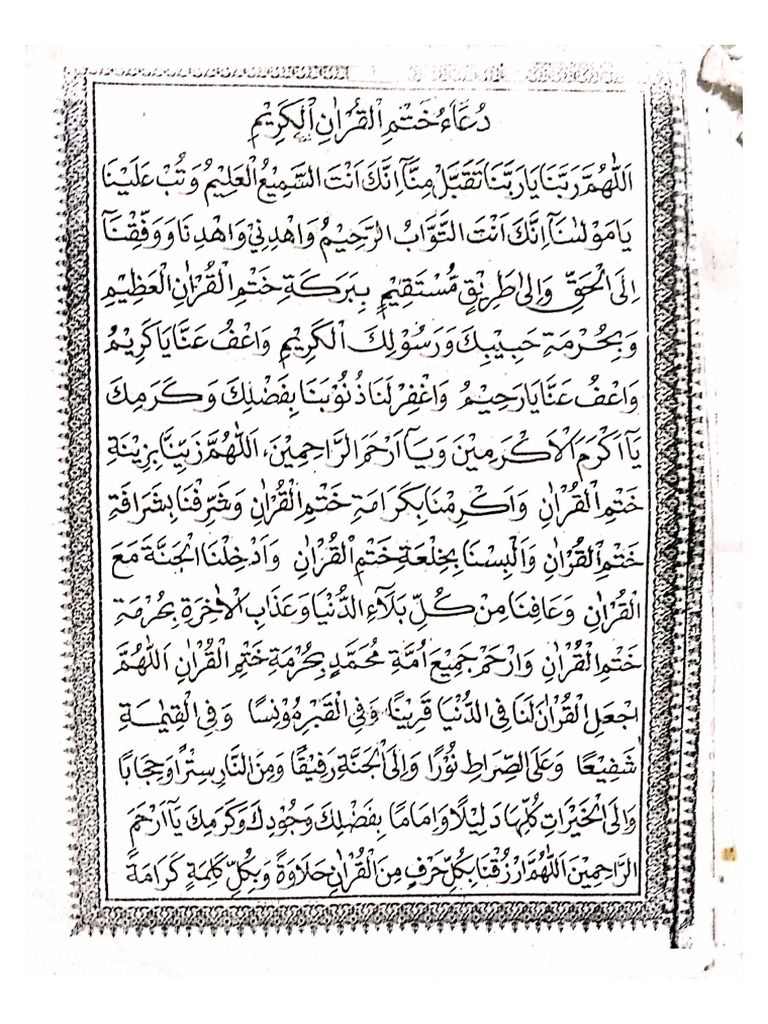 دُعَاءُ خَتْمِ الْقُرْاٰنِ الْكَرِيْمِ
اَللّٰهُمَّ رَبَّنَا يَا رَبَّنَا تَقَبَّلْ مِنَّآ اِنَّكَ اَنْتَ السَّمِيْعُ الْعَلِيْمُ وَتُبْ عَلَيْنَا
يَا مَوْلٰىنَآ اِنَّكَ اَنْتَ التَّوَّابُ الرَّحِيْمُ وَاهْدِنِيْ وَاهْدِنَا وَوَفِّقْنَآ
اِلَى الْحَقِّ وَاِلٰى طَرِيْقٍ مُّسْتَقِيْمٍ بِبَرَكَةِ خَتْمِ الْقُرْاٰنِ الْعَظِيْمِ
وَبِحُرْمَةِ حَبِيْبِكَ وَرَسُوْلِكَ الْكَرِيْمِ وَاعْفُ عَنَّا يَا كَرِيْمُ
وَاعْفُ عَنَّا يَا رَحِيْمُ وَاغْفِرْ لَنَا ذُنُوْبَنَا بِفَضْلِكَ وَكَرَمِكَ
يَآ اَكْرَمَ الْاَكْرَمِيْنَ وَيَآ اَرْحَمَ الرَّاحِمِيْنَ، اَللّٰهُمَّ زَيِّنَّا بِزِيْنَةِ
خَتْمِ الْقُرْاٰنِ وَاَكْرِمْنَا بِكَرَامَةِ خَتْمِ الْقُرْاٰنِ وَشَرِّفْنَا بِشَرَافَةِ
خَتْمِ الْقُرْاٰنِ وَاَلْبِسْنَا بِخِلْعَةِ خَتْمِ الْقُرْاٰنِ وَاَدْخِلْنَا الْجَنَّةَ مَعَ
الْقُرْاٰنِ وَعَافِنَا مِنْ كُلِّ بَلَآءِ الدُّنْيَا وَعَذَابِ الْاٰخِرَةِ بِحُرْمَةِ
خَتْمِ الْقُرْاٰنِ وَارْحَمْ جَمِيْعَ اُمَّةِ مُحَمَّدٍ بِحُرْمَةِ خَتْمِ الْقُرْاٰنِ اَللّٰهُمَّ
اجْعَلِ الْقُرْاٰنَ لَنَا فِى الدُّنْيَا قَرِيْنًا وَفِى الْقَبْرِ مُوْنِسًا وَفِى الْقِيٰمَةِ
شَفِيْعًا وَعَلَى الصِّرَاطِ نُوْرًا وَاِلَى الْجَنَّةِ رَفِيْقًا وَمِنَ النَّارِ سِتْرًا وَحِجَابًا
وَاِلَى الْخَيْرَاتِ كُلِّهَا دَلِيْلًا وَاِمَامًا بِفَضْلِكَ وَجُوْدِكَ وَكَرَمِكَ يَآ اَرْحَمَ
الرَّاحِمِيْنَ اَللّٰهُمَّ ارْزُقْنَا بِكُلِّ حَرْفٍ مِنَ الْقُرْاٰنِ حَلَاوَةً وَبِكُلِّ كَلِمَةٍ كَرَامَةً